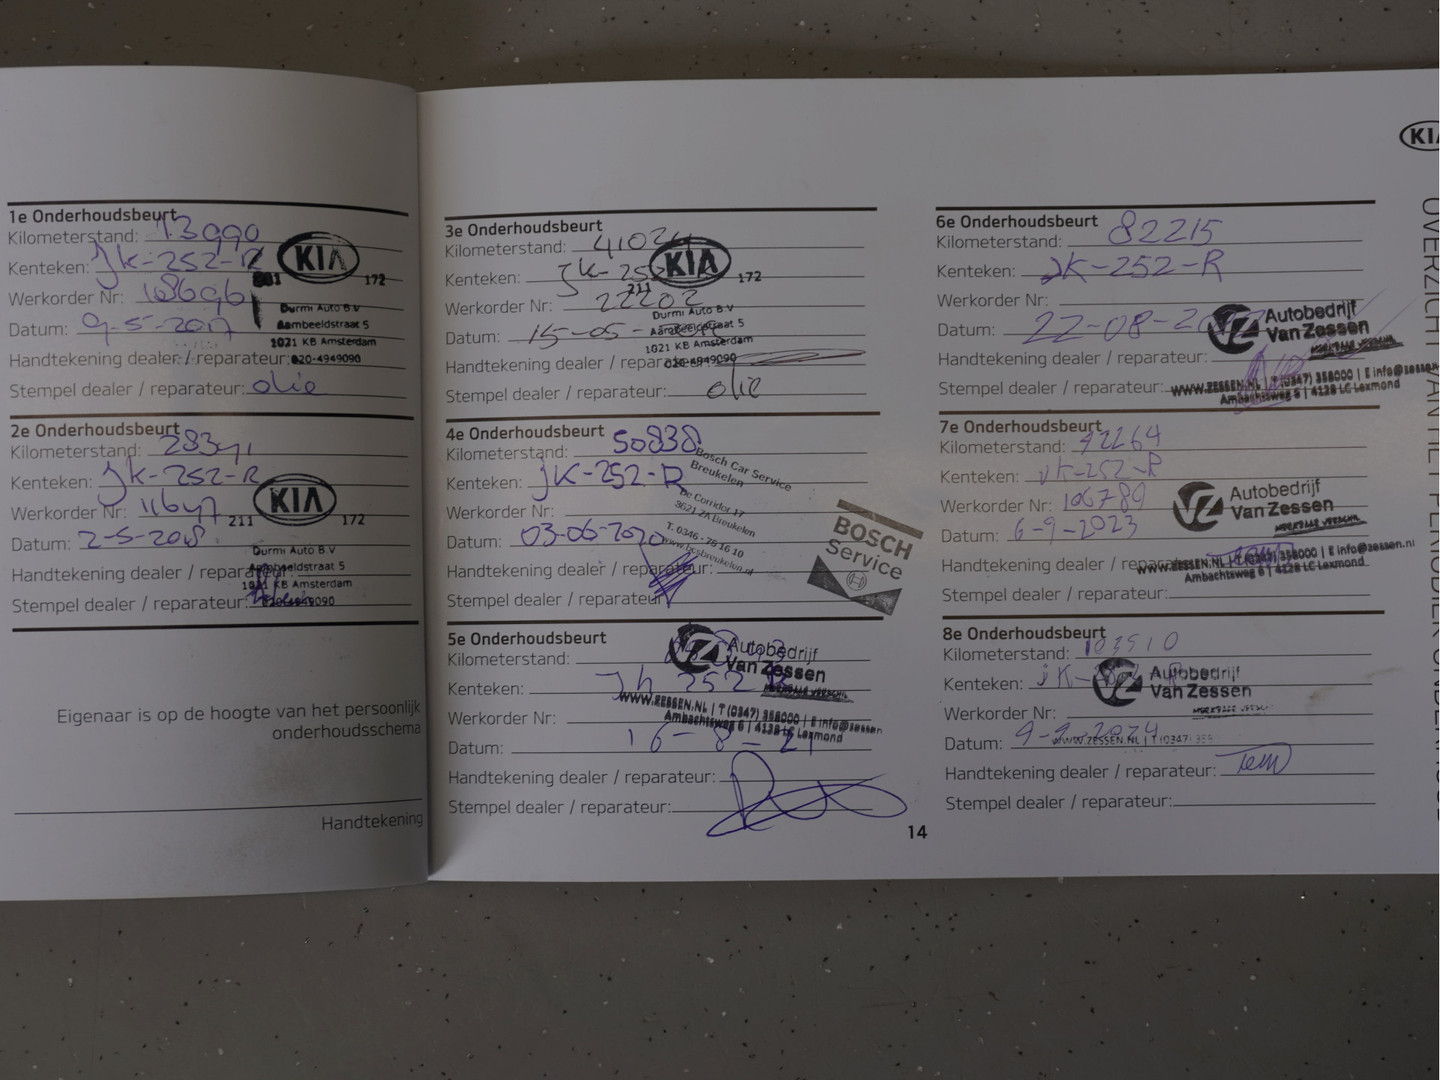 KIA
1e Onderhoudsbeurt
Kilometerstand: 13990
Kenteken: JK-252-R
Werkorder Nr: 108696
Datum: 9-5-2017
Handtekening dealer / reparateur:
Stempel dealer / reparateur: olie
KIA
172
Durmi Auto B.V
Aambeeldstraat 5
1021 KB Amsterdam
020-4949090
2e Onderhoudsbeurt
Kilometerstand:
Kenteken: JK-252-R
Werkorder Nr: 11647
Datum: 2-5-2018
Handtekening dealer / reparateur:
Stempel dealer / reparateur:
KIA
211 172
Durmi Auto B.V
Aambeeldstraat 5
1021 KB Amsterdam
020-4949090
Eigenaar is op de hoogte van het persoonlijk
onderhoudsschema
Handtekening
3e Onderhoudsbeurt
Kilometerstand: 41024
Kenteken: JK-252
Werkorder Nr: 22202
Datum: 15-05-
Handtekening dealer / reparateur:
Stempel dealer / reparateur: olie
KIA
211 172
Durmi Auto B.V
Aambeeldstraat 5
1021 KB Amsterdam
020-4949090
4e Onderhoudsbeurt
Kilometerstand: 50838
Kenteken: JK-252-R
Werkorder Nr:
Datum: 03-06-2020
Handtekening dealer / reparateur:
Stempel dealer / reparateur:
Bosch Car Service
Breukelen
De Corridor 17
3621 ZA Breukelen
T. 0346 - 75 16 10
www.bcsbreukelen.nl
BOSCH
Service
5e Onderhoudsbeurt
Kilometerstand:
Kenteken: JK 252 R
Werkorder Nr:
Datum: 16-8-21
Handtekening dealer / reparateur:
Stempel dealer / reparateur:
Autobedrijf
Van Zessen
WWW.ZESSEN.NL | T (0347) 358000 | E info@zessen
Ambachtsweg 6 | 4128 LC Lexmond
14
6e Onderhoudsbeurt
Kilometerstand: 82215
Kenteken: JK-252-R
Werkorder Nr:
Datum: 22-08-2
Handtekening dealer / reparateur:
Stempel dealer / reparateur:
Autobedrijf
Van Zessen
WWW.ZESSEN.NL | T (0347) 358000 | E info@zessen
Ambachtsweg 6 | 4128 LC Lexmond
7e Onderhoudsbeurt
Kilometerstand: 92264
Kenteken: JK-252-R
Werkorder Nr: 106789
Datum: 6-9-2023
Handtekening dealer / reparateur:
Stempel dealer / reparateur:
Autobedrijf
Van Zessen
WWW.ZESSEN.NL | T (0347) 358000 | E info@zessen.nl
Ambachtsweg 6 | 4128 LC Lexmond
8e Onderhoudsbeurt
Kilometerstand: 103510
Kenteken: JK-
Werkorder Nr:
Datum: 9-9-2024
Handtekening dealer / reparateur:
Stempel dealer / reparateur:
Autobedrijf
Van Zessen
WWW.ZESSEN.NL | T (0347) 358